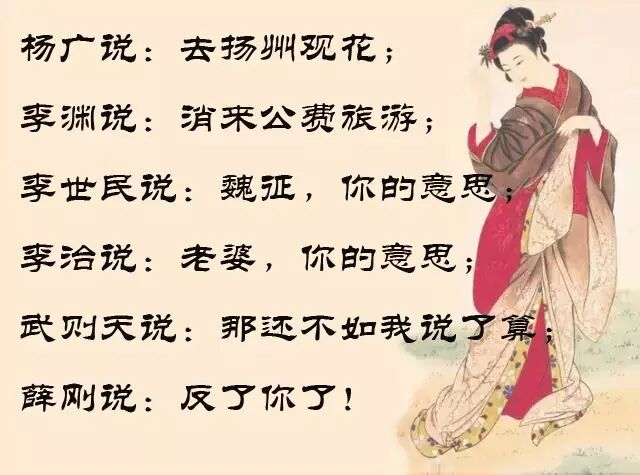 杨广说：去扬州观花；
李渊说：消来公费旅游；
李世民说：魏征，你的意思；
李治说：老婆，你的意思；
武则天说：那还不如我说了算；
薛刚说：反了你了！